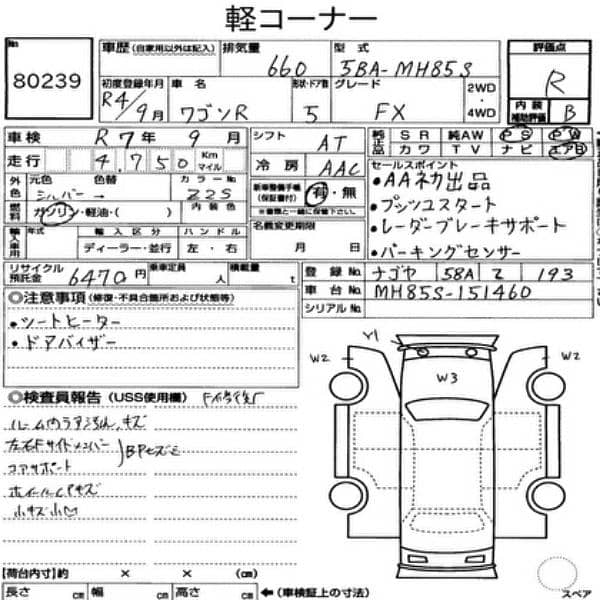 軽コーナー
No.
80239
車歴 (自家用以外は記入)
排気量
660
型式
5BA-MH85S
評価点
R
内装補助評価
B
初度登録年月
R4/9月
車名
ワゴンR
形状・ドア数
5
グレード
FX
2WD
・
4WD
車検
R7年9月
シフト
AT
純正品
SR 純AW PS PW
カワ TV ナビ エアB
走行
4,750
Km
マイル
冷房
AAC
セールスポイント
・AAネカ出品
・プッシュスタート
・レーダーブレーキサポート
・パーキングセンサー
外色
元色
シルバー →
色替
カラーNo.
Z2S
新車整備手帳
(保証書付)
有・無
※書類と一緒に保管下さい。
燃料
ガソリン・軽油・( )
内装色
名義変更期限
月 日
輸入車用
年式
輸入区分
ディーラー・並行
ハンドル
左・右
リサイクル預託金
6470円
乗車定員
人
積載量
t
登録No.
ナゴヤ 58A て 193
車台No.
MH85S-151460
シリアルNo.
◎注意事項 (修復・不具合箇所および状態等)
・シートヒーター
・ドアバイザー
◎検査員報告 (USS使用欄)
F修復
左右Fサイドメンバー
コアサポート
ホイールCPキズ
小キズ小凹
Y1
W2
W3
W2
スペア
【荷台内寸】約 × × (cm)
長さ cm 幅 cm 高さ cm ←(車検証上の寸法)